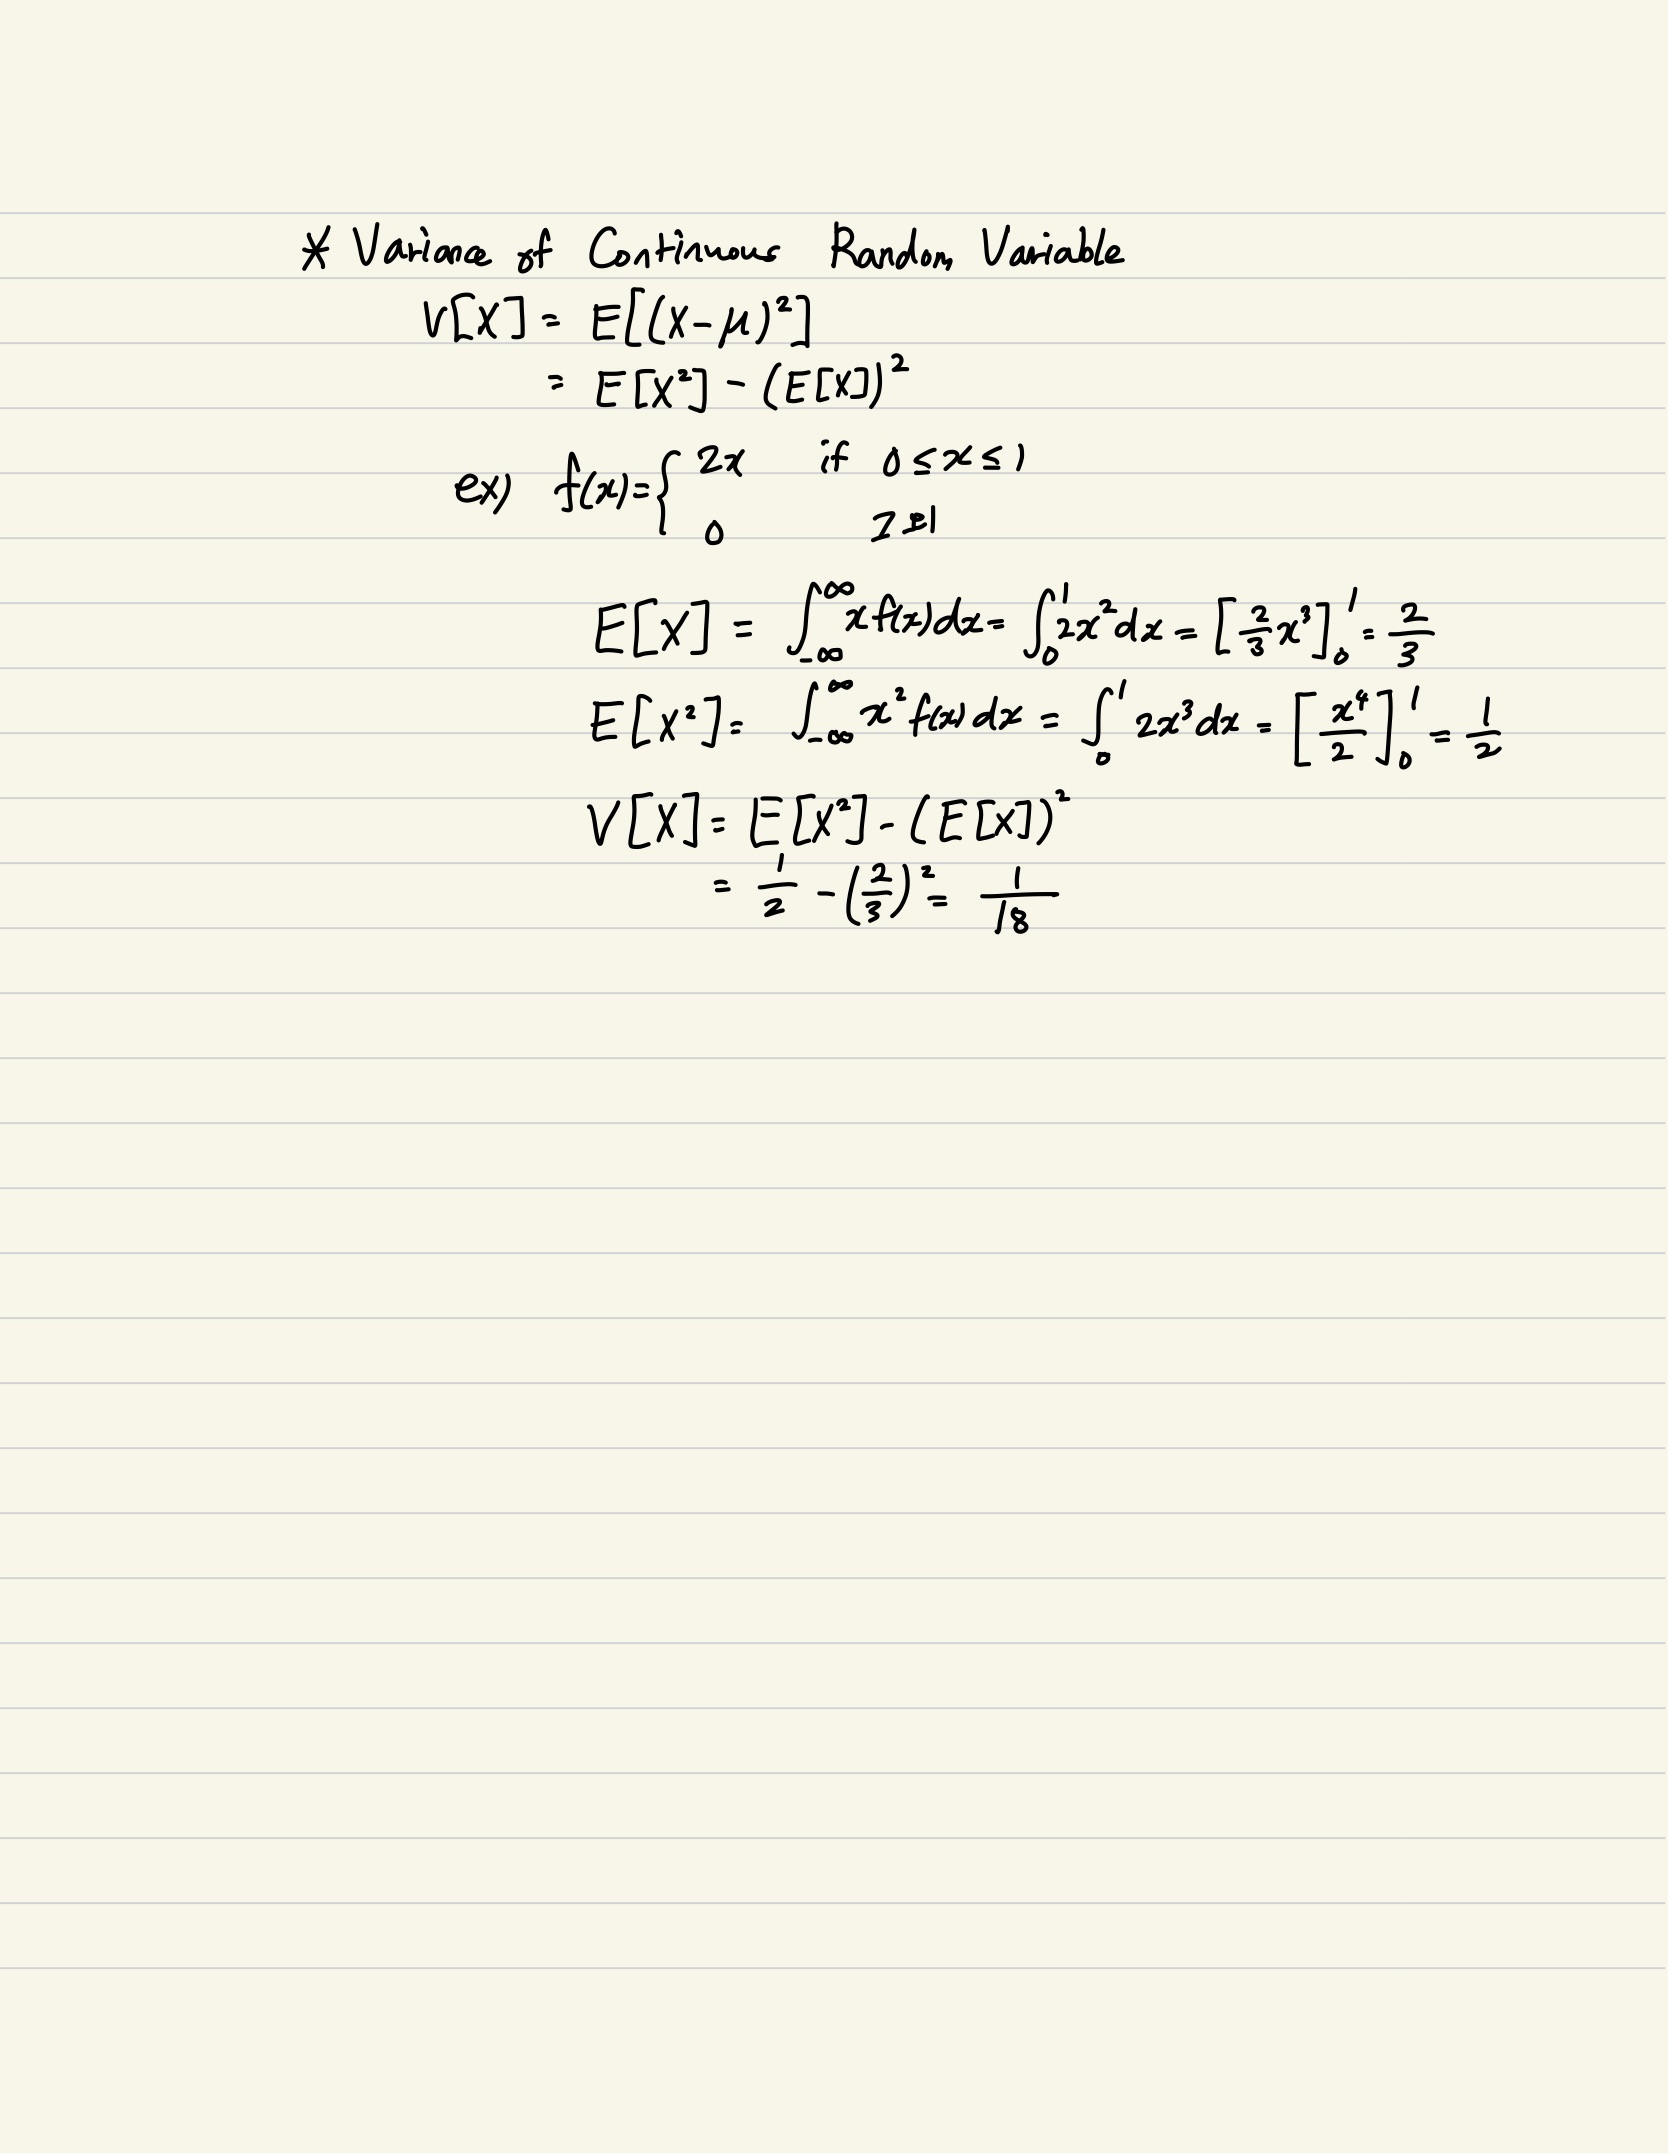 * Variance of Continuous Random Variable
V[X] = E[(X-μ)²]
= E[X²] - (E[X])²
ex) f(x)= { 2x if 0 ≤ x ≤ 1
0 그 외
E[X] = ∫_{-∞}^{∞} x f(x) dx = ∫_0^1 2x² dx = [2/3 x³]_0^1 = 2/3
E[X²] = ∫_{-∞}^{∞} x² f(x) dx = ∫_0^1 2x³ dx = [x⁴/2]_0^1 = 1/2
V[X] = E[X²] - (E[X])²
= 1/2 - (2/3)² = 1/18